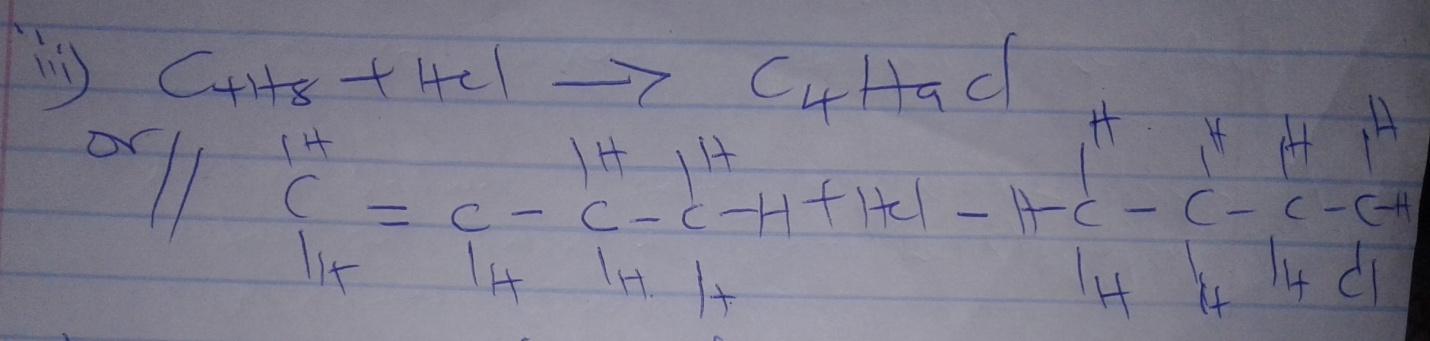 iii) C4H8 + Hcl → C4H9cl
H H H H
or// H H H
C = C - C - C - H + Hcl - H - C - C - C - C - H
H H H H H H H cl